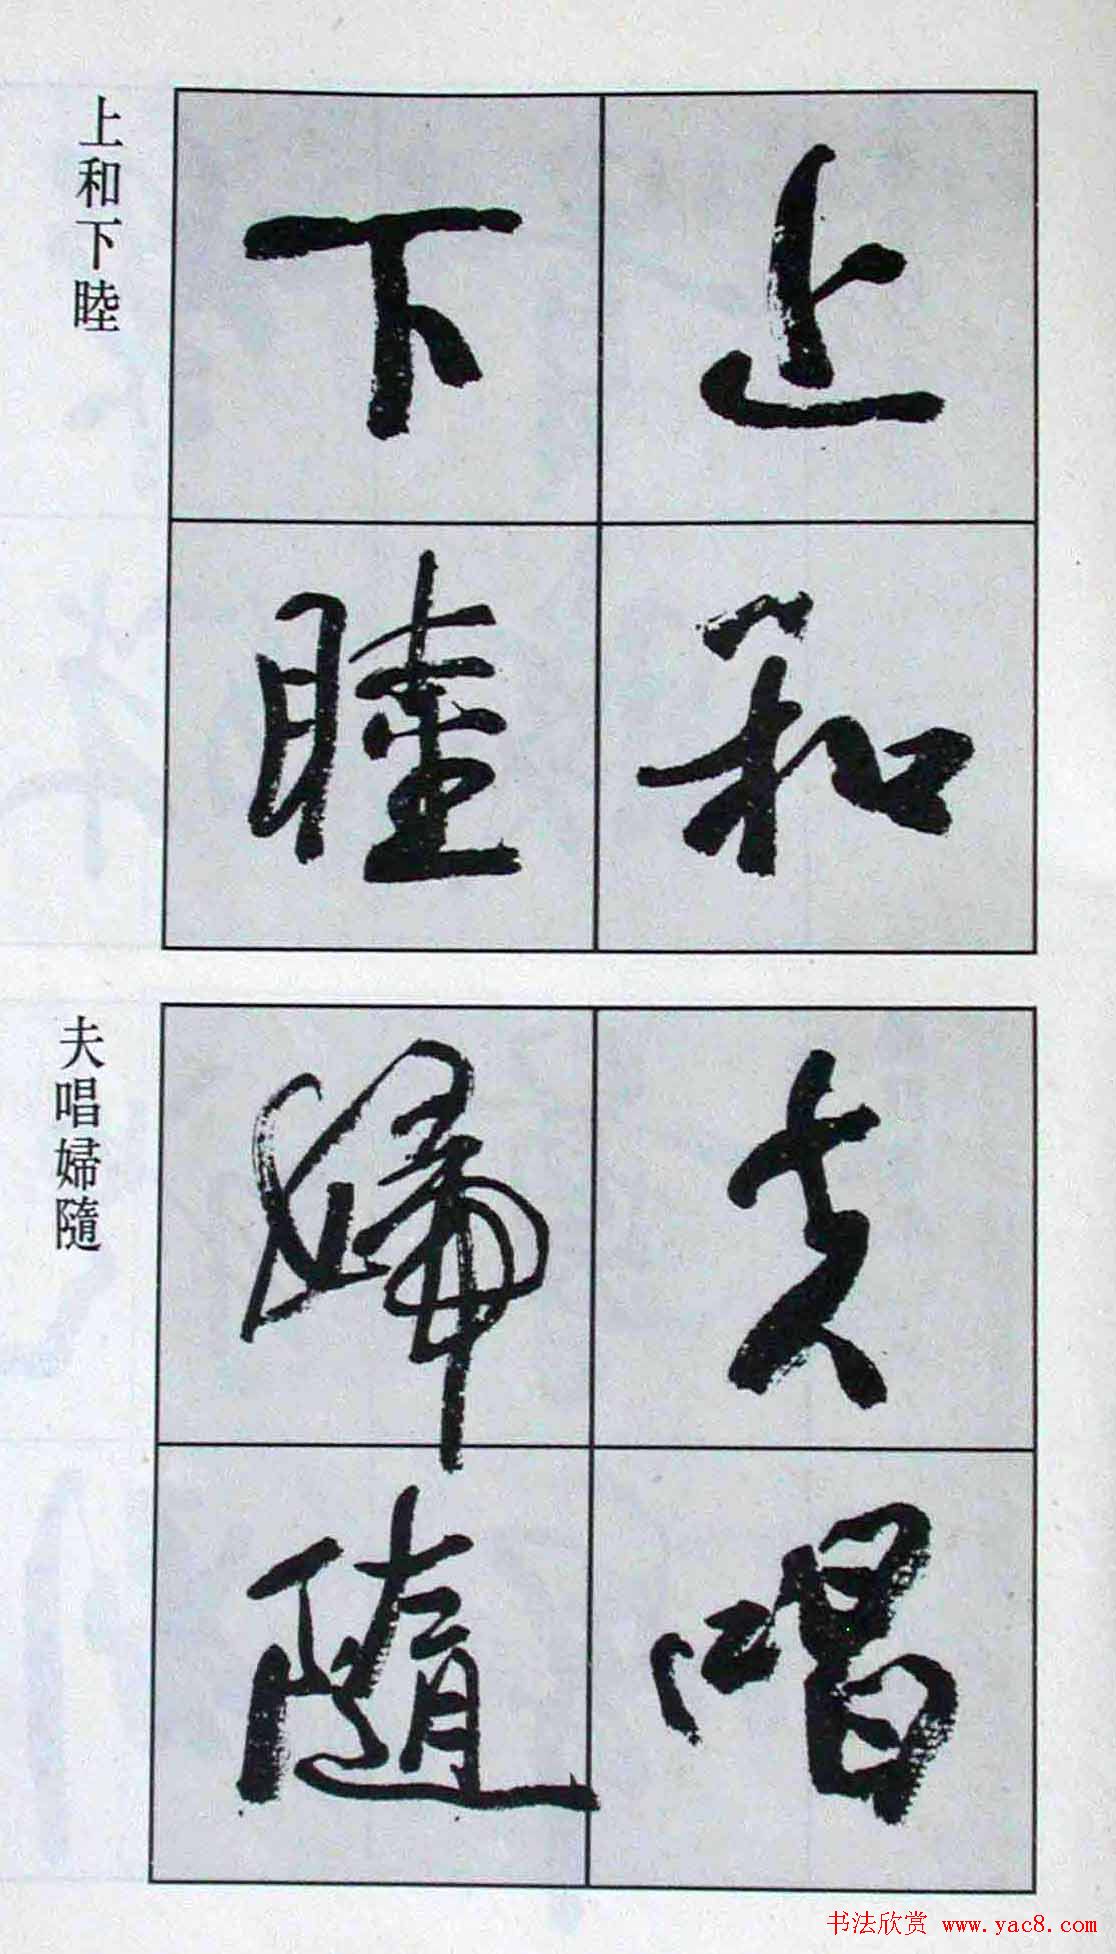 上和
下睦
上和下睦
夫唱
婦隨
夫唱婦隨
书法欣赏 www.yac8.com